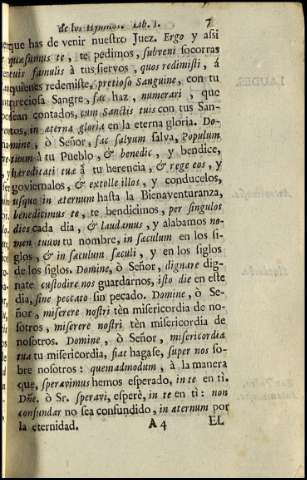 de los Hymnos. Lib. I. 7
que has de venir nuestro Juez. Ergo y assi
quæsumus te, te pedimos, subveni socorras
famulis à tus siervos, quos redimisti, á
quienes redemiste, pretioso Sanguine, con tu
preciosa Sangre, fac haz, numerari, que
sean contados, cum Sanctis tuis con tus San-
tos, in æterna gloria en la eterna gloria. Do-
mine, ò Señor, fac salvum salva, Populum
tuum à tu Pueblo, & benedic, y bendice,
hæreditati tuæ à tu herencia, & rege eos, y
goviernalos, & extolle illos, y conducelos,
usque in æternum hasta la Bienaventuranza,
benedicimus te, te bendicimos, per singulos
dies cada dia, & laudamus, y alabamos no-
men tuum tu nombre, in sæculum en los si-
glos, & in sæculum sæculi, y en los siglos
de los siglos. Domine, ò Señor, dignare dig-
nate custodire nos guardarnos, isto die en este
dia, sine peccato sin pecado. Domine, ò Se-
ñor, miserere nostri tèn misericordia de no-
sotros, miserere nostri tèn misericordia de
nosotros. Domine, ò Señor, misericordia
tua tu misericordia, fiat hagase, super nos so-
bre nosotros: quemadmodum, à la manera
que, speravimus hemos esperado, in te en ti.
Dñe. ò Sr. speravi, esperè, in te en ti: non
confundar no sea confundido, in æternum por
la eternidad. A 4 EL